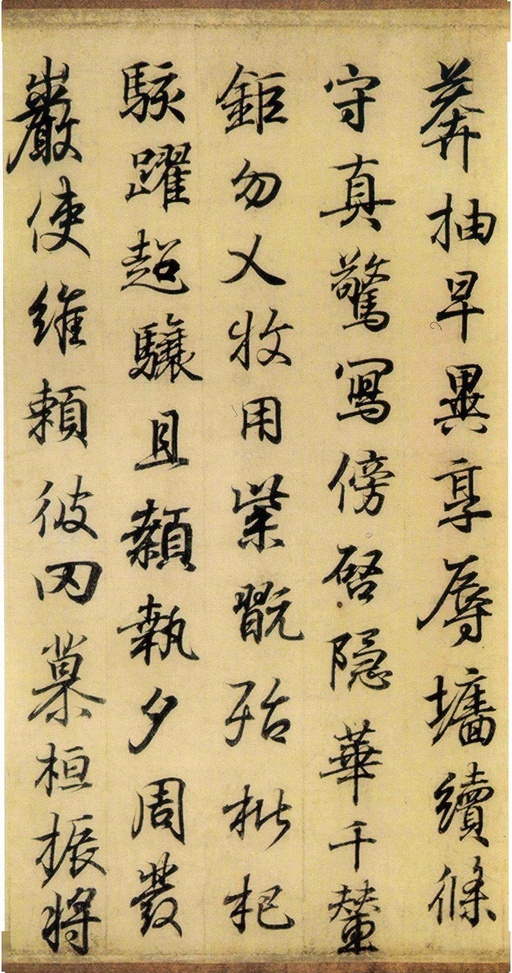 莽抽早異亭辱墻續條
守真驚寫傍啓隱華千輦
鉅勿乂牧用紫翫殆枇杷
駭躍超驤且顙執夕周發
巖使維賴彼罔慕桓振將